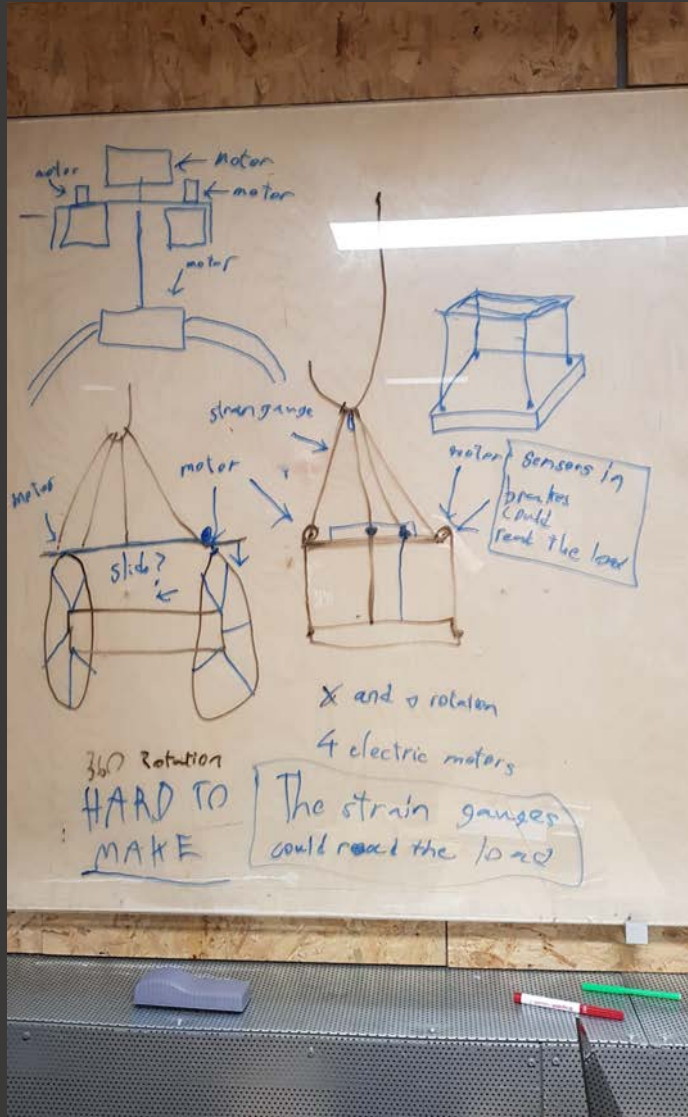 motor
motor
motor
motor
strain gauge
motor
motor
motor
sensors in
breakes
could
read the load
slide?
X and
rotation
4 electric motors
360 Rotation
HARD TO
MAKE
The strain gauges
could read the load